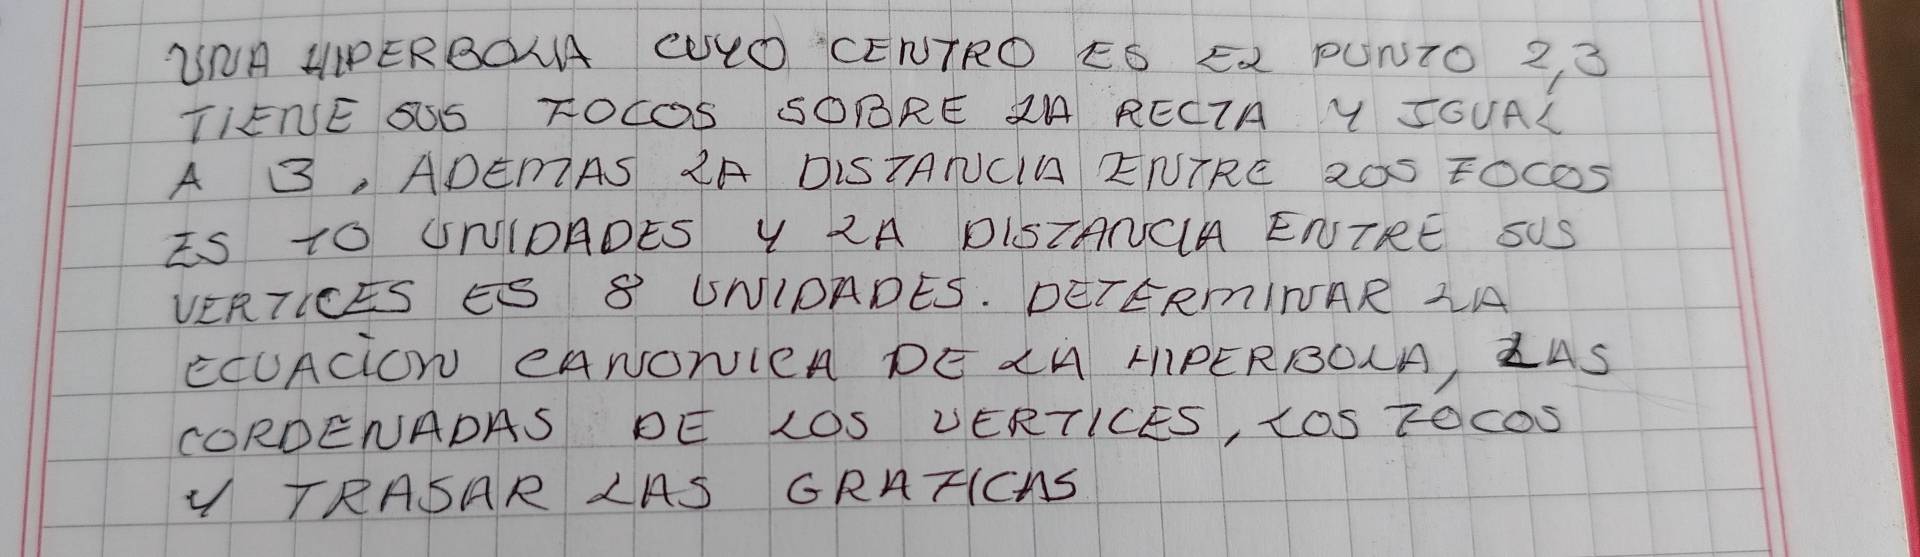 UNA HIPERBOLA CUYO CENTRO ES EL PUNTO 2,3
TIENE SUS FOCOS SOBRE LA RECTA Y IGUAL
A 3, ADEMAS LA DISTANCIA ENTRE LOS FOCOS
ES 10 UNIDADES Y LA DISTANCIA ENTRE SUS
VERTICES ES 8 UNIDADES. DETERMINAR LA
ECUACION CANONICA DE LA HIPERBOLA, LAS
CORDENADAS DE LOS VERTICES, LOS FOCOS
Y TRASAR LAS GRAFICAS